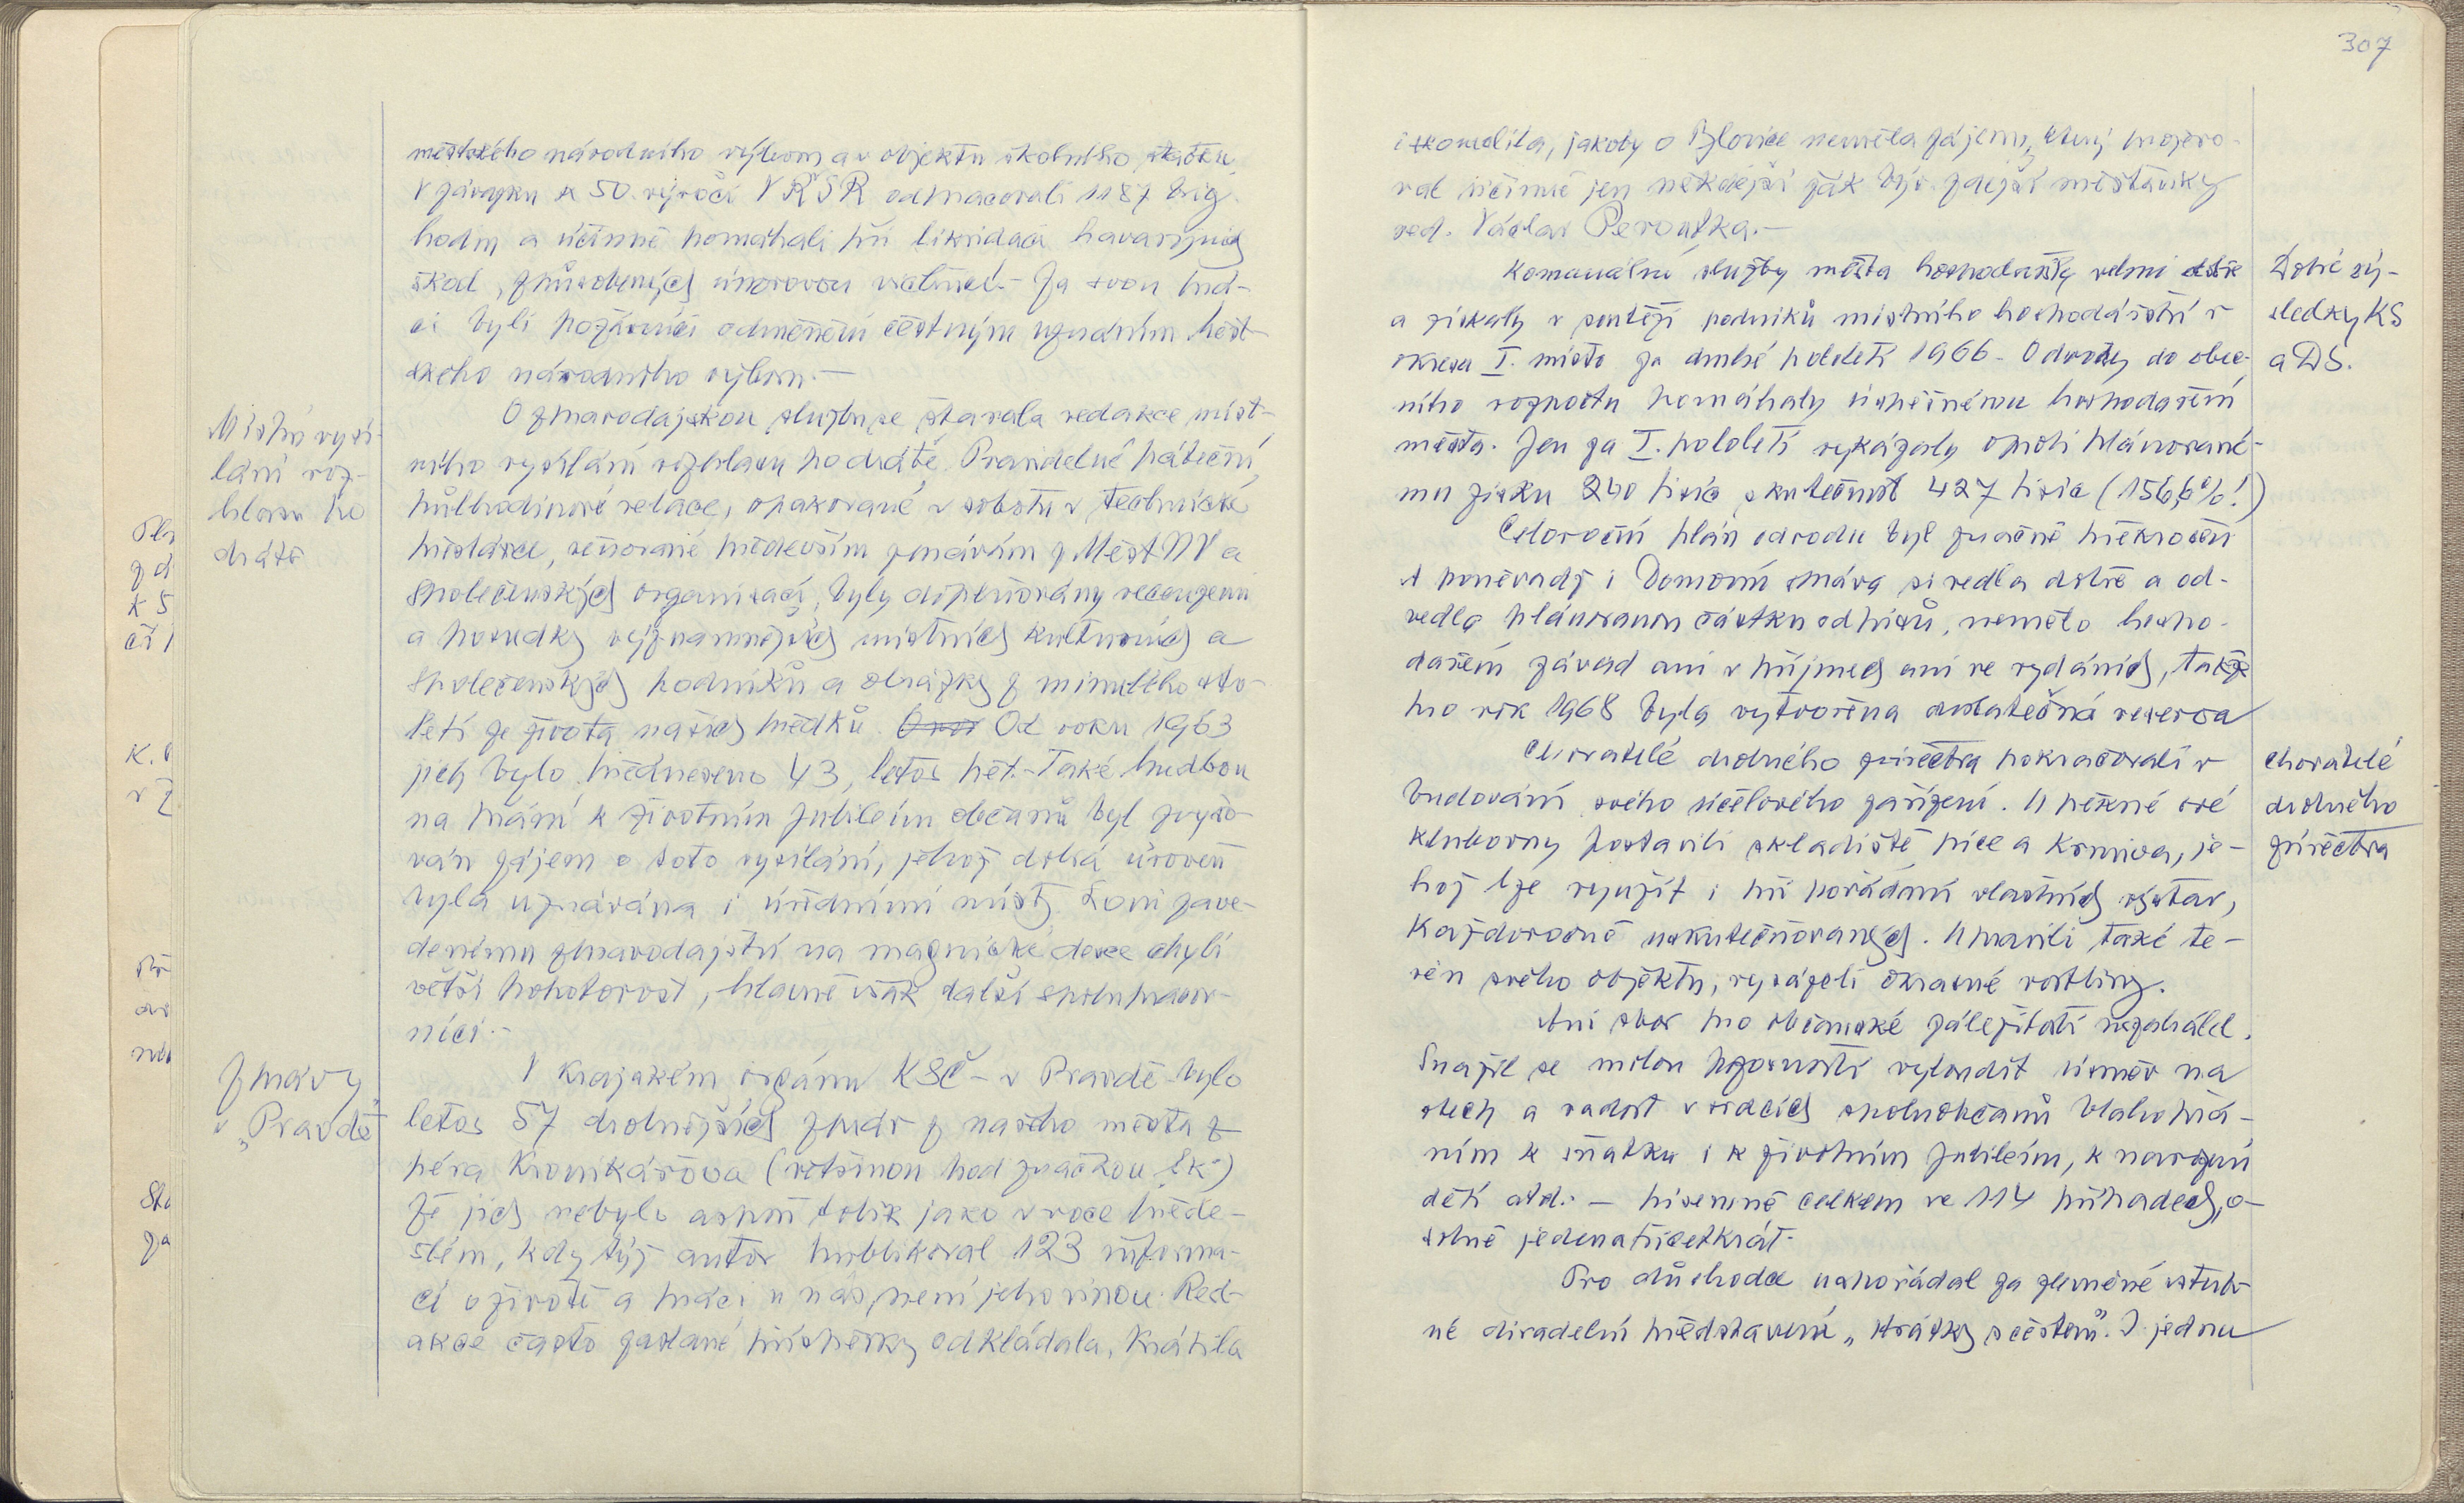 307
městského národního výboru a v objektu školního statku.
V závazku k 50. výročí VŘSR odpracovali 1187 brig.
hodin a účinně pomáhali při likvidaci havarijních
škod, způsobených únorovou vichřicí. - Za svou prá-
ci byli požárníci odměněni čestným uznáním Měst-
ského národního výboru. -
Místní vysí-
lání roz-
hlasu po
drátě
O zpravodajskou službu se starala redakce míst-
ního vysílání rozhlasu po drátě. Pravidelné páteční
půlhodinové relace, opakované v sobotu v technické
přestávce, věnované především zprávám z MěstNV a
společenských organisací, byly doplňovány recenzemi
a posudky významnějších místních kulturních a
společenských podniků a obrázky z minulého sto-
letí ze života našich předků. Od roku 1963
jich bylo předneseno 43, letos pět. - Také hudbou
na přání k životním jubileím občanů byl zvyšo-
ván zájem o toto vysílání, jehož dobrá úroveň
byla uznávána i úředními místy. Loni zave-
denému zpravodajství na magnetické desce chybí
větší pohotovost, hlavně však další spolupracov-
níci. -
Zprávy
v „Pravdě"
V krajském orgánu KSČ - v Pravdě - bylo
letos 57 drobnějších zpráv z našeho města z
péra kronikářova (většinou pod značkou „šk")
Že jich nebylo aspoň tolik jako v roce přede-
šlém, kdy týž autor publikoval 123 informa-
cí o životě a práci u nás, není jeho vinou. Red-
akce často zaslané příspěvky odkládala, krátila
i skomolila, jakoby o Blovice neměla zájem, který projevo-
val účinně jen někdejší žák býv. zdejší měšťanky
red. Václav Peroutka. -
Dobré vý-
sledky KS
a DS.
Komunální služby města hospodařily velmi dobře
a získaly v soutěži podniků místního hospodářství v
okrese I. místo za druhé pololetí 1966. Odvody do obec-
ního rozpočtu pomáhaly úspěšnému hospodaření
města. Jen za I. pololetí vykázaly oproti plánované-
mu zisku 240 tisíc skutečnost 427 tisíc (156,6%!)
Celoroční plán odvodu byl značně překročen
A poněvadž i Domovní správa si vedla dobře a od-
vedla plánovanou částku odpisů, nemělo hospo-
daření závad ani v příjmech ani ve vydáních, takže
pro rok 1968 byla vytvořena dostatečná reserva
Chovatelé
drobného
zvířectva
Chovatelé drobného zvířectva pokračovali v
budování svého účelového zařízení. U pěkné své
klubovny postavili skladiště píce a krmiva, je-
hož lze využít i při pořádání vlastních výstav,
každoročně uskutečňovaných. Upravili také te-
rén svého objektu, vysázeli okrasné rostliny.
Ani sbor pro občanské záležitosti nezahálel.
Snažil se milou pozorností vyloudit úsměv na
rtech a radost v srdcích spoluobčanů blahopřá-
ním k sňatku i k životním jubileím, k narození
dětí atd. - písemně celkem ve 114 případech, o-
sobně jedenatřicetkrát.
Pro důchodce uspořádal za zlevněné vstup-
né divadelní představení „Hrátky s čertem". I jednu